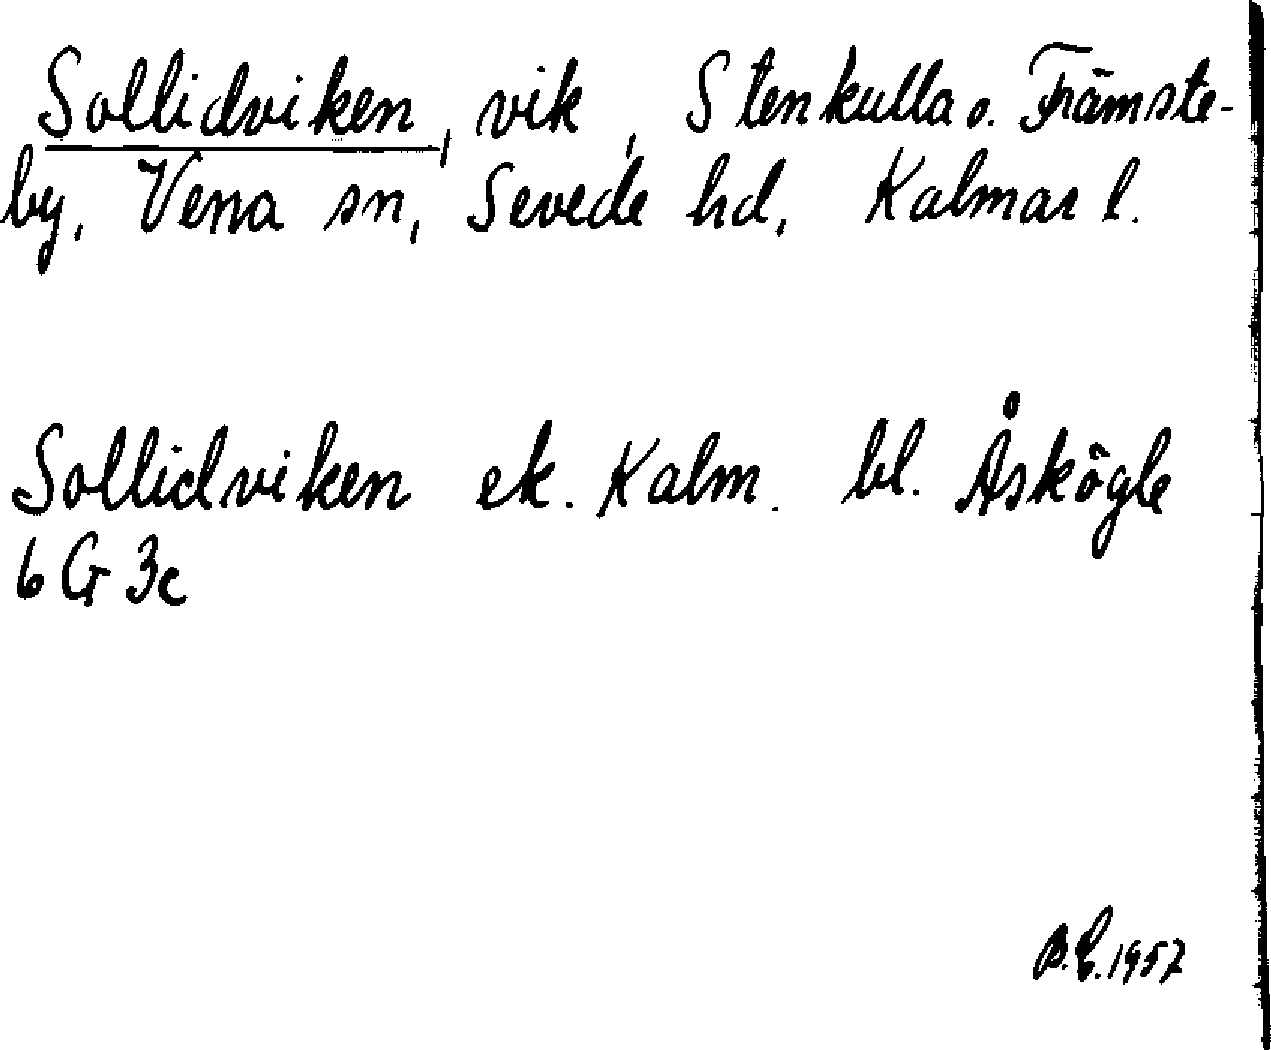 Sollidviken, vik, Stenkulla o. Främste-
by, Vena sn, Sevede hd, Kalmar l.
Sollidviken ek. Kalm. bl. Åskögle
6 G 3c
B.E. 1957